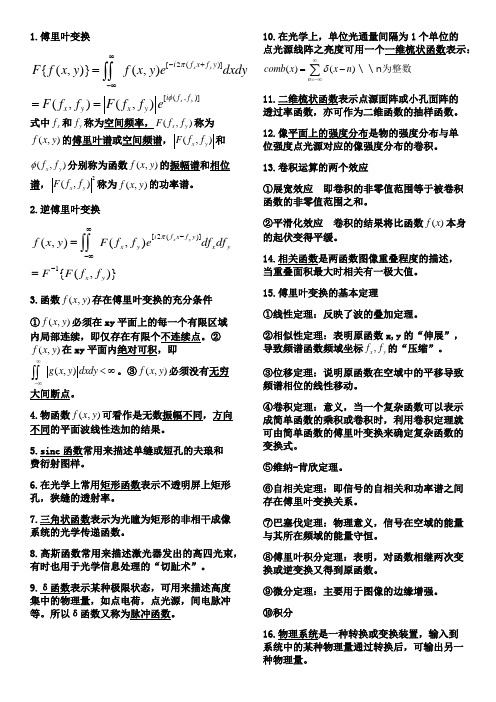 1.傅里叶变换
F{f(x,y)} = ∬_{-∞}^{∞} f(x,y)e^{[-i2π(f_x x+f_y y)]}dxdy
= F(f_x,f_y) = |F(f_x,f_y)|e^{[iϕ(f_x,f_y)]}
式中f_x和f_y称为空间频率，F(f_x,f_y)称为
f(x,y)的傅里叶谱或空间频谱，|F(f_x,f_y)|和
ϕ(f_x,f_y)分别称为函数f(x,y)的振幅谱和相位
谱，|F(f_x,f_y)|^2称为f(x,y)的功率谱。
2.逆傅里叶变换
f(x,y) = ∬_{-∞}^{∞} F(f_x,f_y)e^{[i2π(f_x x-f_y y)]}df_x df_y
= F^{-1}{F(f_x,f_y)}
3.函数f(x,y)存在傅里叶变换的充分条件
①f(x,y)必须在xy平面上的每一个有限区域
内局部连续，即仅存在有限个不连续点。②
f(x,y)在xy平面内绝对可积，即
∬_{-∞}^{∞} |g(x,y)|dxdy<∞。③f(x,y)必须没有无穷
大间断点。
4.物函数f(x,y)可看作是无数振幅不同，方向
不同的平面波线性迭加的结果。
5.sinc函数常用来描述单缝或短孔的夫琅和
费衍射图样。
6.在光学上常用矩形函数表示不透明屏上矩形
孔，狭缝的透射率。
7.三角状函数表示为光瞳为矩形的非相干成像
系统的光学传递函数。
8.高斯函数常用来描述激光器发出的高四光束，
有时也用于光学信息处理的“切趾术”。
9.δ函数表示某种极限状态，可用来描述高度
集中的物理量，如点电荷，点光源，间电脉冲
等。所以δ函数又称为脉冲函数。
10.在光学上，单位光通量间隔为1个单位的
点光源线阵之亮度可用一个一维梳状函数表示：
comb(x) = ∑_{n=-∞}^{∞} δ(x-n) \ \n为整数
11.二维梳状函数表示点源面阵或小孔面阵的
透过率函数，亦可作为二维函数的抽样函数。
12.像平面上的强度分布是物的强度分布与单
位强度点光源对应的像强度分布的卷积。
13.卷积运算的两个效应
①展宽效应 即卷积的非零值范围等于被卷积
函数的非零值范围之和。
②平滑化效应 卷积的结果将比函数f(x)本身
的起伏变得平缓。
14.相关函数是两函数图像重叠程度的描述，
当重叠面积最大时相关有一极大值。
15.傅里叶变换的基本定理
①线性定理：反映了波的叠加定理。
②相似性定理：表明原函数x,y的“伸展”，
导致频谱函数频域坐标f_x,f_y的“压缩”。
③位移定理：说明原函数在空域中的平移导致
频谱相位的线性移动。
④卷积定理：意义，当一个复杂函数可以表示
成简单函数的乘积或卷积时，利用卷积定理就
可由简单函数的傅里叶变换来确定复杂函数的
变换式。
⑤维纳-肯欣定理。
⑥自相关定理：即信号的自相关和功率谱之间
存在傅里叶变换关系。
⑦巴塞伐定理：物理意义，信号在空域的能量
与其所在频域的能量守恒。
⑧傅里叶积分定理：表明，对函数相继两次变
换或逆变换又得到原函数。
⑨微分定理：主要用于图像的边缘增强。
⑩积分
16.物理系统是一种转换或变换装置，输入到
系统中的某种物理量通过转换后，可输出另一
种物理量。